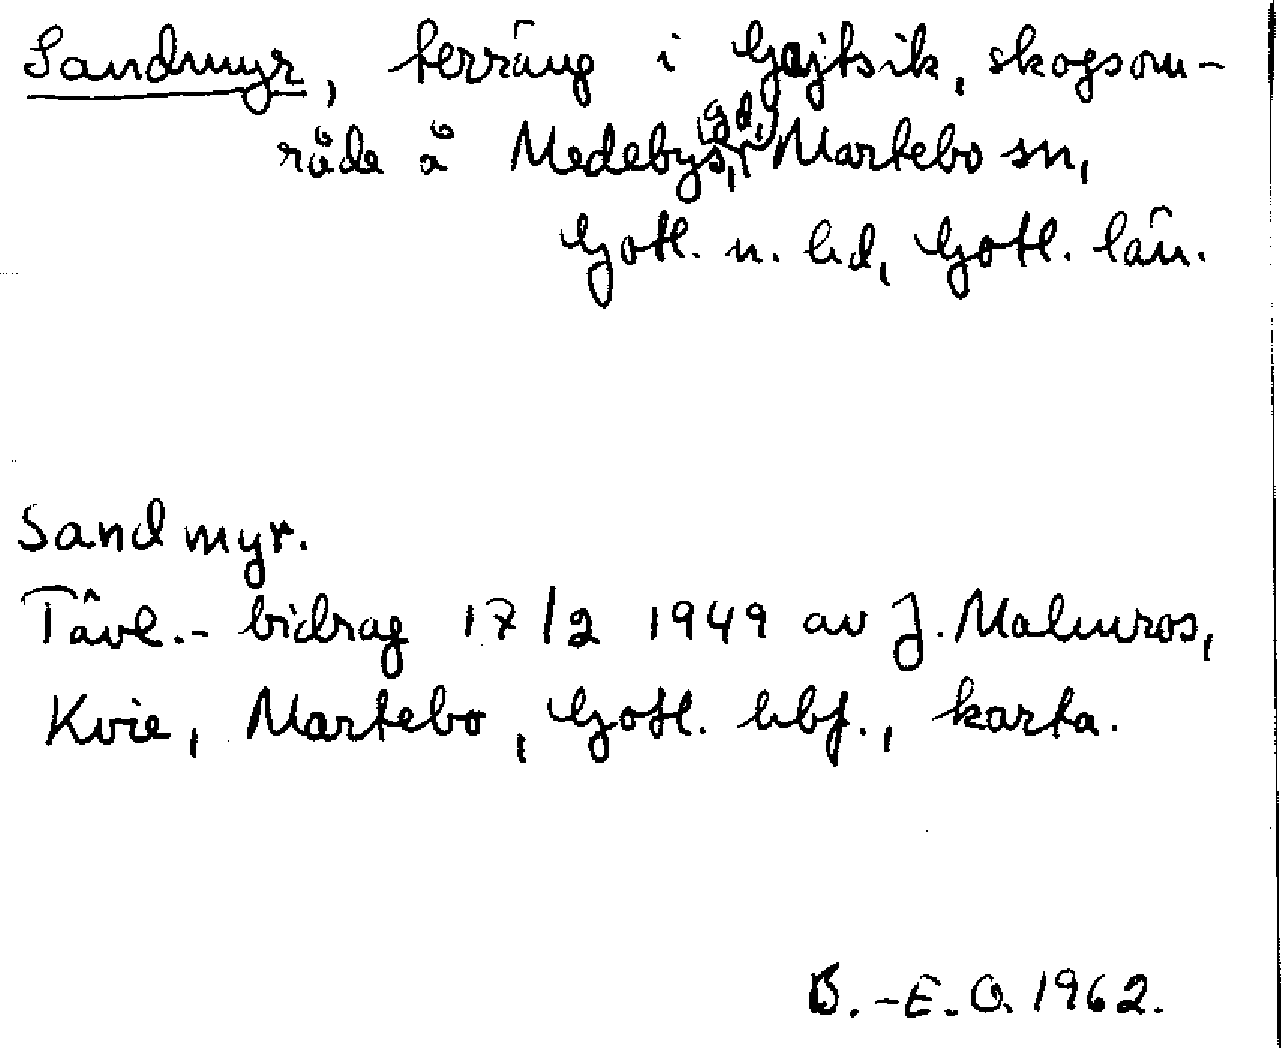 Sandmyr, terräng i Gajtsik, skogsom-
råde å Medebys, (gd,) Martebo sn,
Gotl. n. hd, Gotl. län.
Sandmyr.
Tävl.- bidrag 17/2 1949 av J. Malmros,
Kvie, Martebo, Gotl. hbf., karta.
B.-E. O. 1962.